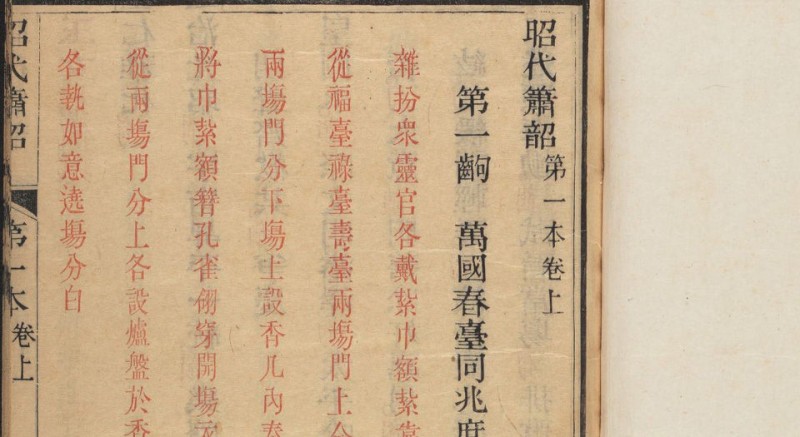 昭代簫韶 第一本卷上
第一齣 萬國春臺同兆
雜扮衆靈官各戴紥巾額紥
從福臺祿臺壽臺兩塲門上
兩塲門分下塲上設香几内奏
將巾紥額簪孔雀翎穿開塲
從兩塲門分上各設爐盤於香
各執如意遶塲分白
昭代簫韶 第一本卷上